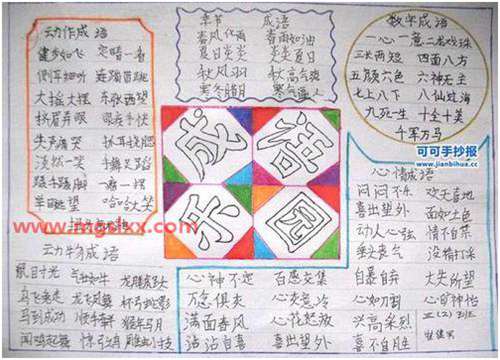 动作成语
健步如飞
侧耳细听 连蹦带跳
大摇大摆 东张西望
挤眉弄眼 眼疾手快
失声痛哭 抓耳挠腮
淡然一笑 手舞足蹈
哈哈大笑
季节 成语
春风化雨 春雨如油
夏日炎炎 炎炎夏日
秋高气爽
寒冬腊月 寒气逼人
数字成语
一心一意 二龙戏珠
三长两短 四面八方
五颜六色 六神无主
七上八下 八仙过海
九死一生 十全十美
千军万马
可可手抄报
www.jianbihua.cc
成语乐园
www.mgslxx.com
动物成语
鼠目寸光 气壮如牛 龙腾虎跃
龙飞凤舞 杯弓蛇影
马到成功 猴年马月
闻鸡起舞 惊弓之鸟
心情成语
闷闷不乐 欢天喜地
喜出望外 面如土色
动人心弦 情不自禁
垂头丧气 没精打采
自暴自弃 大失所望
心如刀割 心旷神怡
兴高采烈
喜不自胜
三(2)班
心神不定 百感交集
万念俱灰 心灰意冷
满面春风 心花怒放
沾沾自喜 喜出望外